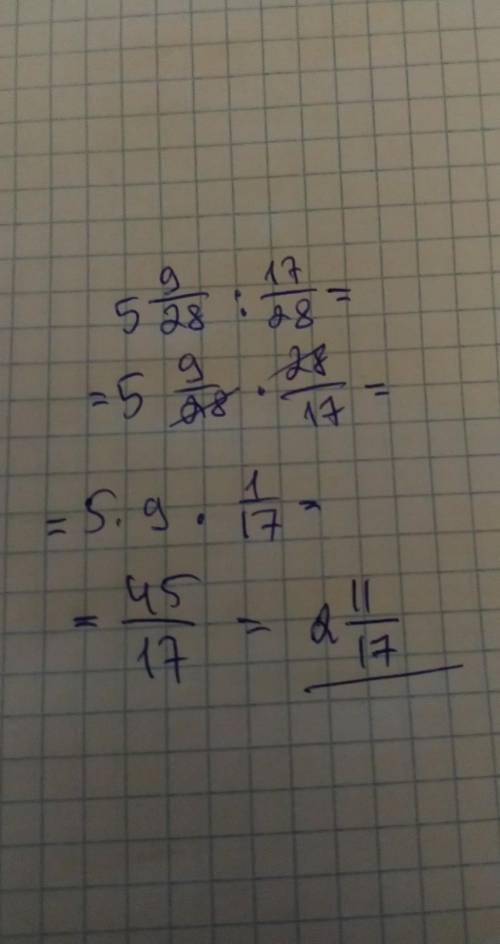 5 9/28 : 17/28 =
= 5 9/28 · 28/17 =
= 5 · 9 · 1/17 =
= 45/17 = 2 11/17